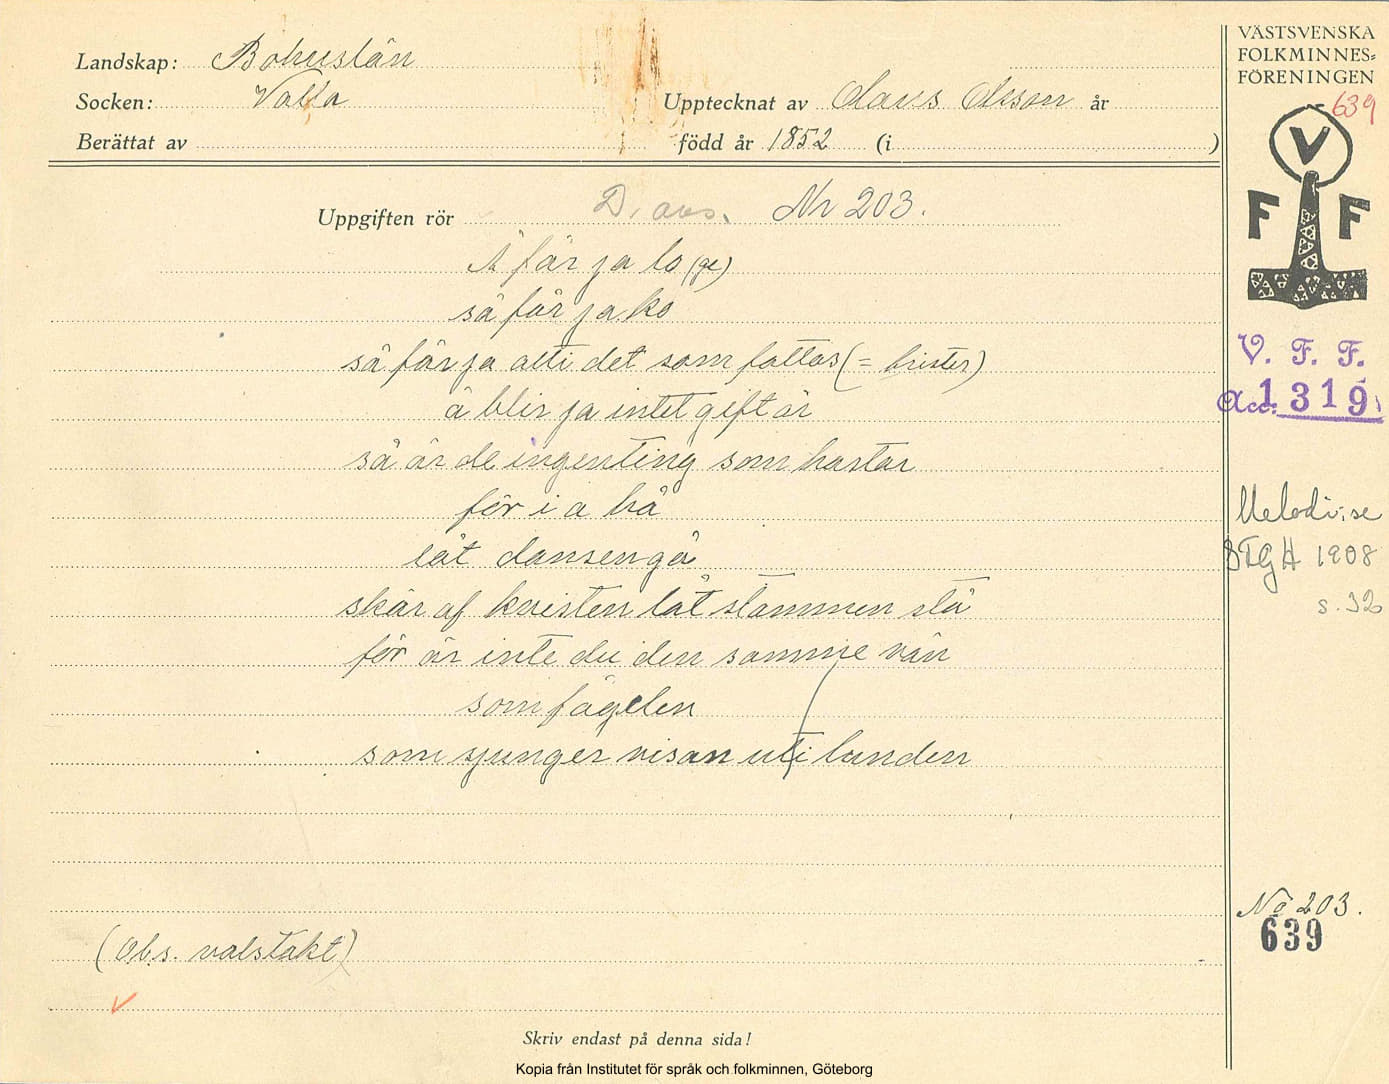 Landskap: Bohuslän
Socken: Valla
Berättat av
Upptecknat av Claus Olsson år
född år 1852 (i )
VÄSTSVENSKA
FOLKMINNES-
FÖRENINGEN
639
V
F F
V. F. F.
Acc. 1319
Uppgiften rör D. avs. Nr 203.
Å får ja lo (ge)
så får ja ko
så får ja allt det som fattas (= brister)
å blir ja intet gift år
så är de ingenting som hastar
för i a hå
låt dansen gå
skär af kvisten låt stammen stå
för är inte du den samme vän
som fågelen
som sjunger visan uti lunden
Melodi, se
STGH 1908
s. 32
No 203.
639
(Obs. valstakt)
Skriv endast på denna sida!
Kopia från Institutet för språk och folkminnen, Göteborg